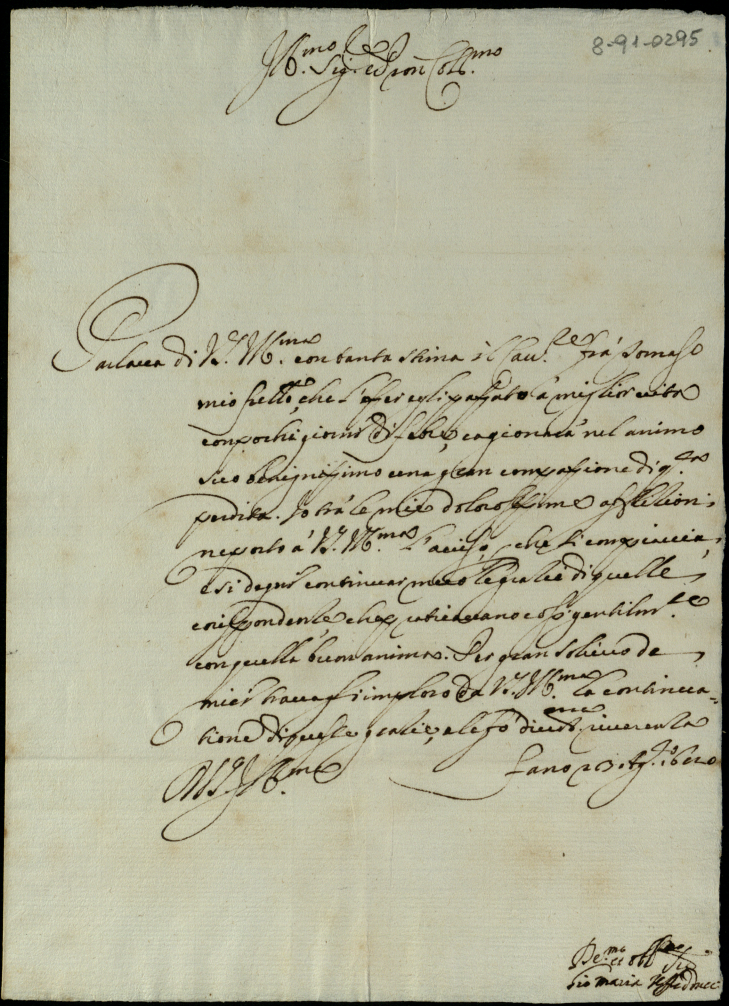 8-91-0295
Ill.mo Sig.re et Pron Coll.mo
Parlava di V.S. Ill.ma con tanta stima il Cav.re frà Tomaso
mio frello, che l'esser egli passato à miglior vita
con pochi giorni di febre, cagionerà nel animo
suo benignissimo una gran compassione di q.ta
perdita. Io trà le mie dolorosissime afflittioni
ne porto à V.S. Ill.ma l'aviso, che si compiaccia,
e si degni continuar meco le gratie di quelle
corrispondenze, che passavano così gentilm.te
con quella buon anima. Per gran sollievo de
miei travagli imploro da V.S. Ill.ma la continua-
tione di queste gratie, e le fò reverenza
Di V.S. Ill.ma
Fano 23 Ag.o
Dev.mo et obl.mo
Gio Maria